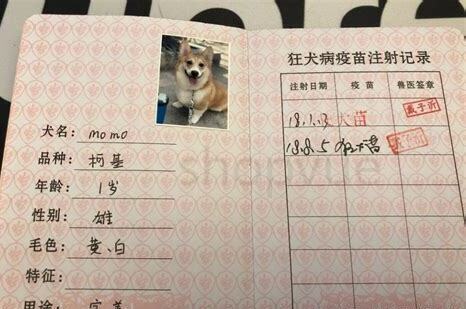 犬名: momo
品种: 柯基
年龄: 1岁
性别: 雄
毛色: 黄、白
特征:
用途:
狂犬病疫苗注射记录
注射日期 疫苗 兽医签章
18.1.13 犬苗
18.8.5